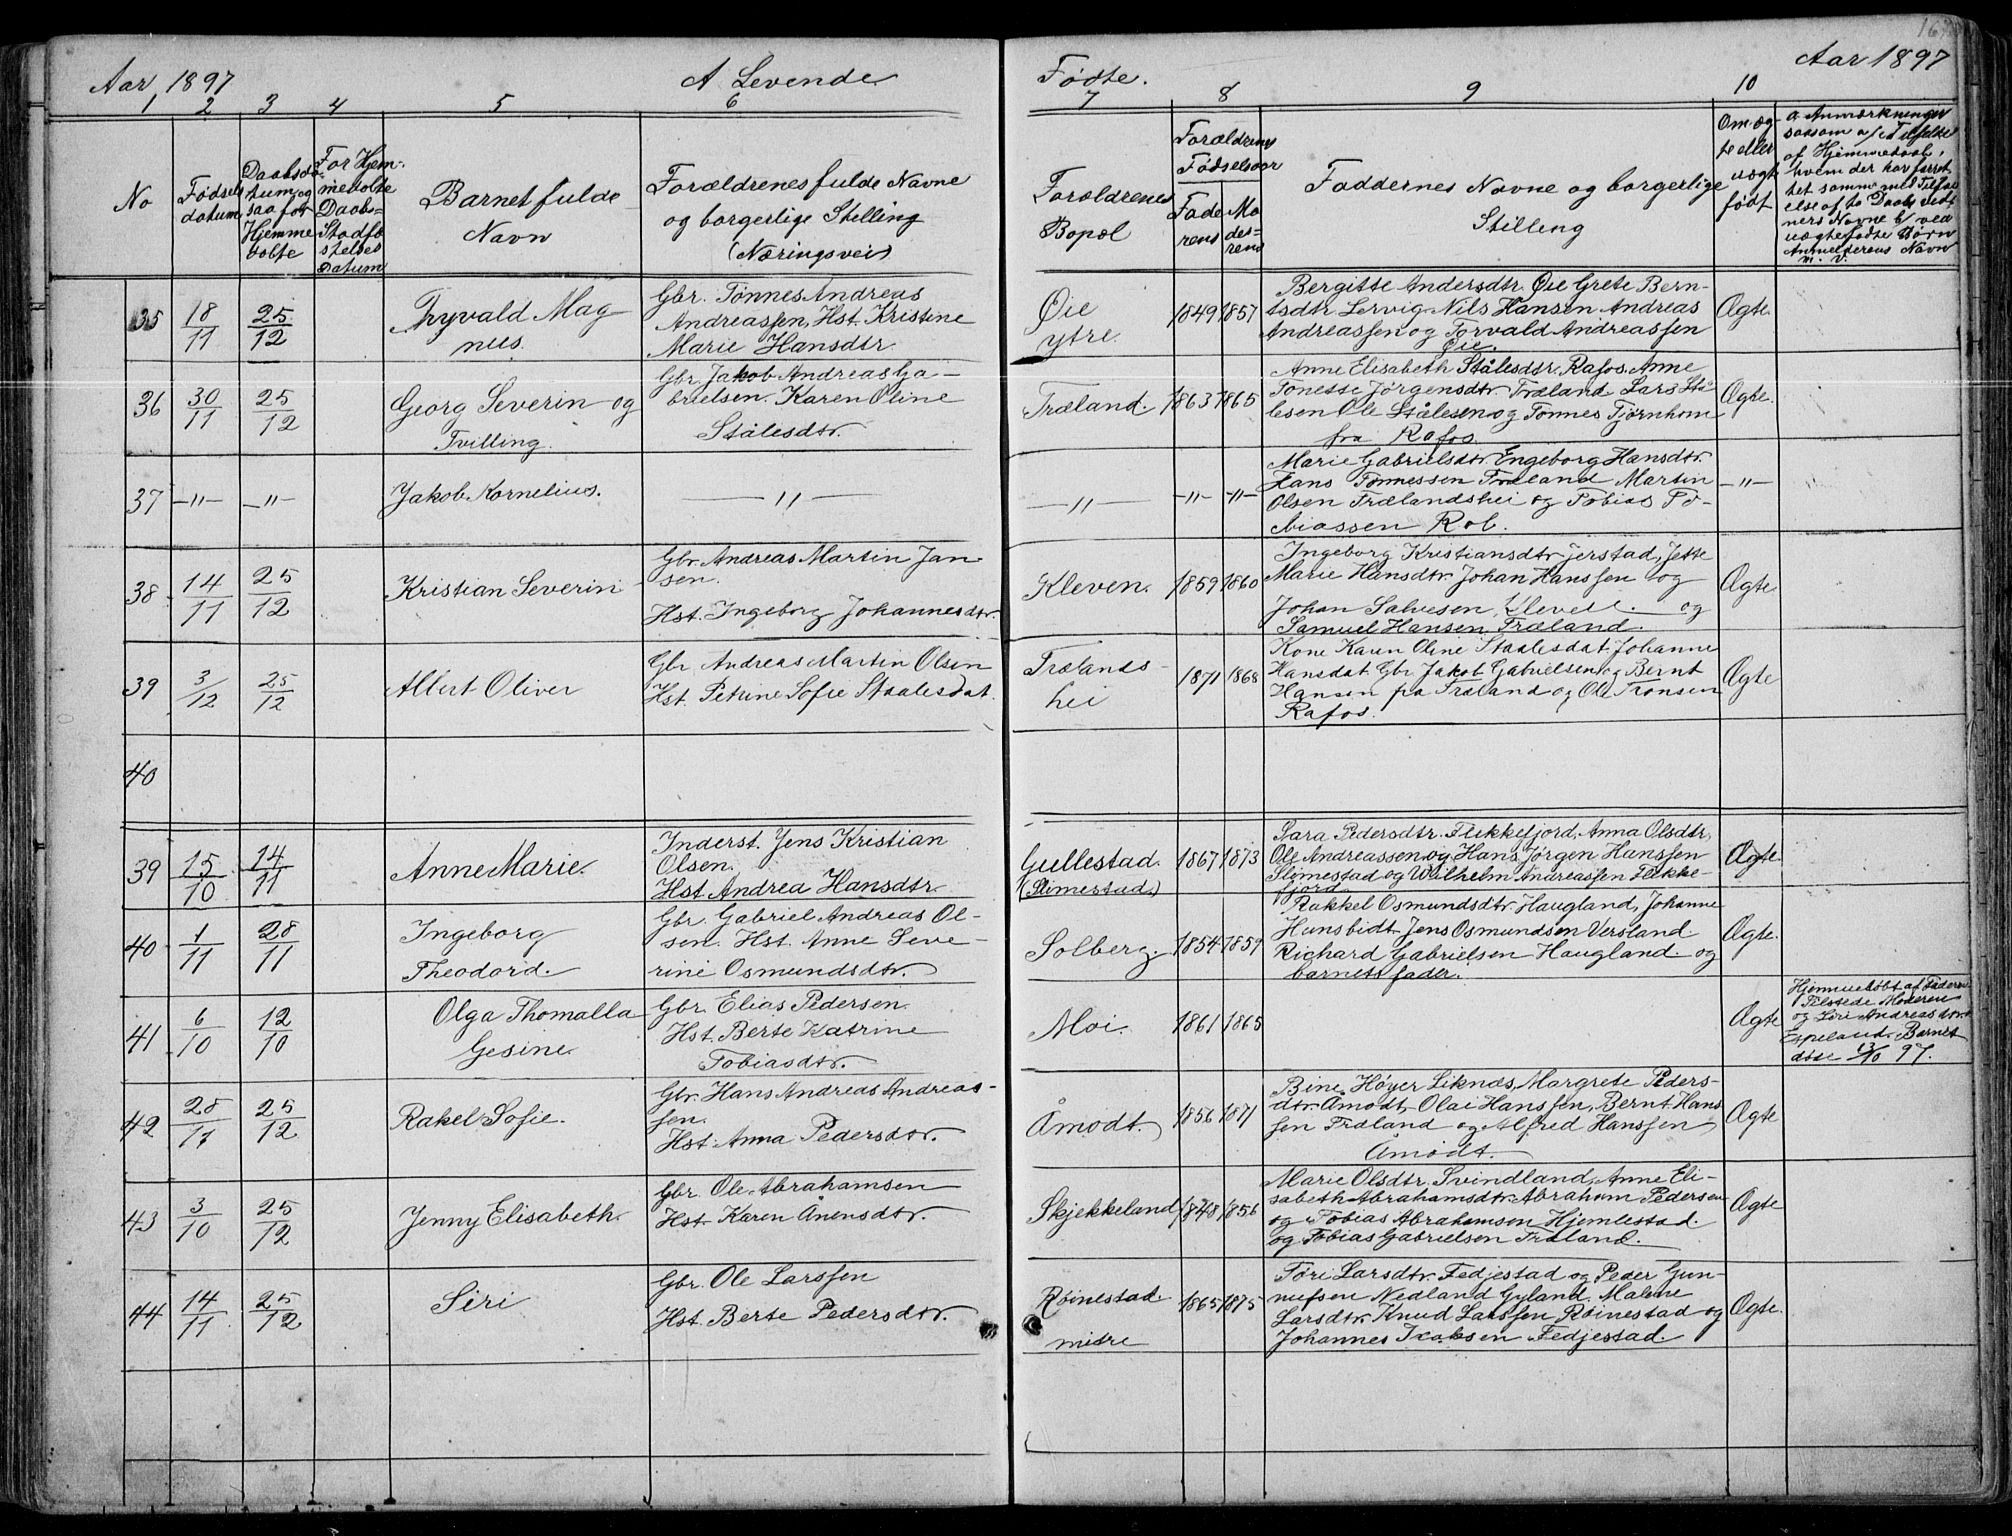 167
Aar 1897
A Levende
Fødte.
Aar 1897
1 2 3 4 5 6 7 8 9 10
No
Fødsels
datum
Daabsda
tum og
saa for
Hjemme
døbte
For Hjem-
medøbte
Daabs-
Stadfæ
stelses
Datum
Barnet fulde
Navn
Forældrenes fulde Navne
og borgerlige Stilling
(Næringsvei)
Forældrenes
Bopæl
Forældrenes
Fødselsaar
Fade
rens
Mo
de-
rens
Faddernes Navne og borgerlige
Stilling
Om æg-
te eller
uægt
født
Anmærkninger
saasom a/ Tilfælde
af Hjemmedaab,
hvem der har forret
tet samme med Tilfø
else af to Daabsvid
ners Navne b/ ved
uægtefødte Børn
Anmelderens Navn
m. v.
35 18/11 25/12
Thyvald Mag
nus.
Gbr. Tønnes Andreas
Andreassen, Hst. Kristine
Marie Hansdtr
Øie
ytre.
1849 1857
Bergitte Andersdtr Øie Grete Bern-
tsdtr Lervig Nils Hansen Andreas
Andreassen og Torvald Andreassen
Øie.
Ægte.
36 30/11 25/12
Georg Severin og
Tvilling.
Gbr. Jakob Andreas Ga-
brielsen. Karen Oline
Stålesdtr.
Træland. 1863 1865
Anne Elisabeth Stålesdtr. Rafos Anne
Tonette Jørgensdtr. Træland Lars Stå
lesen Ole Stålesen og Tønnes Tjørnhom
fra Rafos.
Ægte.
37 -"- -"-
Jakob Kornelius.
-"-
-"- -"- -"-
Marie Gabrielsdtr. Engeborg Hansdtr.
Hans Tønnessen Træland Martin
Olsen Trælandshei og Tobias To-
biassen Rob.
-"-
38 14/11 25/12
Kristian Severin
Gbr. Andreas Martin Jan-
sen.
Hst. Ingeborg Johannesdtr.
Kleven. 1859 1860
Ingeborg Kristiansdtr jerstad, Jette
Marie Hansdtr. Johan Hanssen og
Johan Salvesen Kleven. og
Samuel Hansen Træland.
Ægte.
39 3/12 25/12
Albert Oliver
Gbr. Andreas Martin Olsen
Hst. Petrine Sofie Staalesdat.
Trælands-
hei
1871 1868
Kone Karen Oline Staalesdat, Johanne
Hansdat. Gbr Jakob Gabrielsen og Bernt
Hansen fra Træland og Ole Tronsen
Rafos.
Ægte
40
39 15/10 14/11
Anne Marie.
Inderst. Jens Kristian
Olsen.
Hst. Andrea Hansdtr.
Gullestad.
(Slimestad)
1867 1873
Sara Pedersdtr. Flekkefjord, Anna Olsdtr,
Ole Andreassen og Hans Jørgen Hanssen
Slimestad og Wilhelm Andreassen Flekke-
fjord
Ægte.
40 1/11 28/11
Ingeborg
Theodord.
Gbr. Gabriel Andreas Ol-
sen. Hst. Anne Seve-
rine Osmundsdtr.
Solberg. 1854 1859
Rakkel Osmundsdtr. Haugland, Johanne
Jens Osmundsen Versland
Richard Gabrielsen Haugland. og
barnets fader.
Ægte.
41 6/10 12/10
Olga Thomalla
Gesine.
Gbr. Elias Pedersen.
Hst. Berte Katrine
Tobiasdtr.
Moi. 1861 1865
Ægte
Hjemmedøbt af Faderen
Tilstede Moderen
og Siri Andreasdtr
Espeland. Barnet
døde 13/10 97.
42 28/11 25/12
Rakel Sofie.
Gbr. Hans Andreas Andreas-
sen.
Hst. Anna Pedersdtr.
Åmodt. 1856 1871
Bine Høyer Liknæs, Margrete Peders-
dtr. Åmodt, Olai Hanssen, Bernt Hans
sen Træland og Alfred Hanssen
Åmodt.
Ægte
43 3/10 25/12
Jenny Elisabeth.
Gbr. Ole Abrahamsen
Hst. Karen Ånensdtr.
Skjekkeland 1848 1856
Marie Olsdtr. Svindland, Anne Eli-
sabeth Abrahamsdtr. Abraham Pedersen
og Tobias Abrahamsen Hjemlestad.
og Tobias Gabrielsen Træland.
Ægte
44 14/11 25/12
Siri
Gbr. Ole Larssen
Hst. Berte Pedersdtr.
Røinestad
midre
1865 1875
Tori Larsdtr. Fedjestad og Peder Gun-
nufsen Nedland Gyland. Malene
Larsdtr. Knud Larssen Røinestad og
Johannes Isaksen Fedjestad.
Ægte.